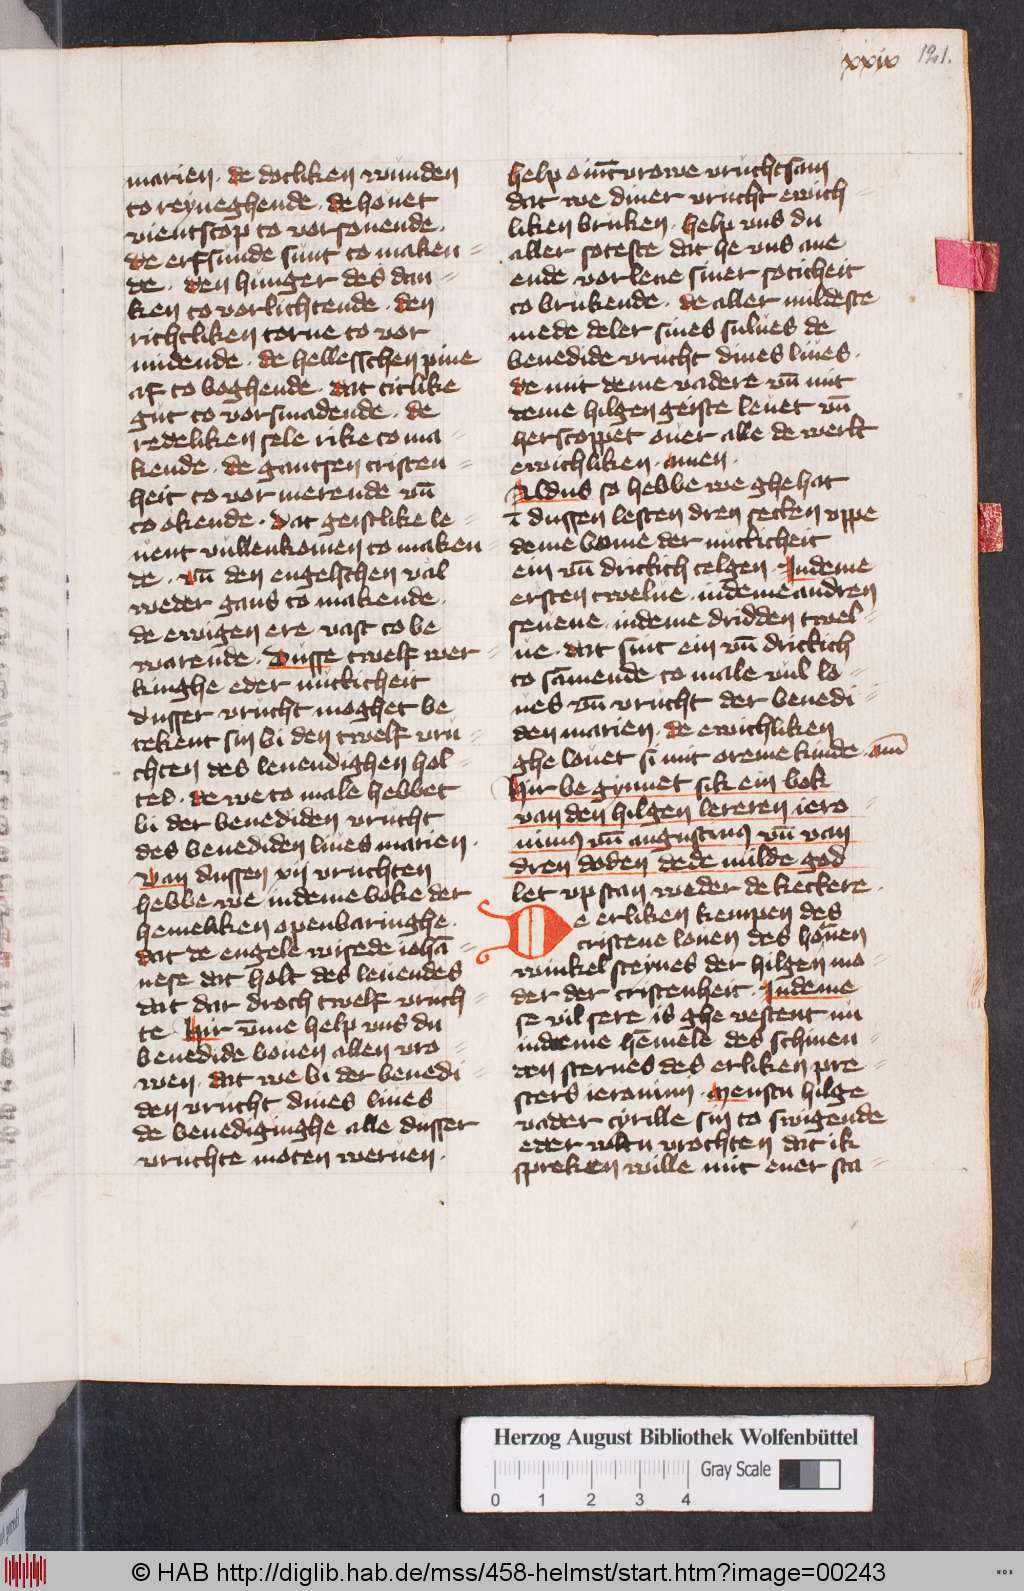 xxix 121.
marien. de dotliken wunden
to reyneghende. de houet
vientscop to vorsonende.
de erfsunde sunt to maken=
de. den hunger des dan=
ken to vorlichtende. den
richtliken torne to vor
midende. de hellesschen pine
af to boghende. dat titlike
gut to vorsmadende. de
redeliken sele rike to ma=
kende. de gantsen cristen=
heit to vor merende vn̄
to okende. dat geistlike le=
uent vullenkomen to maken=
de. vn̄ den engelschen val
weder gans to makende.
de ewigen ere vast to be
warende. Dusse twelf wer=
kinghe eder nutticheit
dusser vrucht moghet be
tekent sin bi den twelf vru=
chten des leuendighen hol=
tes. de we to male hebbet
bi der benediden vrucht
des benediden liues marien.
Van dussen xij vruchten
hebbe we indeme boke der
hemeliken openbaringhe.
dat de engele wisede iohā=
nese dat holt des leuendes
dat dar droch twelf vruch=
te Hir v̄me help vns du
benedide bouen allen vro=
wen. dat we bi der benedi=
den vrucht dines liues
de benediginghe alle dusser
vruchte moten weruen.
help o int vrowe vruchtsam
dat we diner vrucht ewich=
liken bruken. help vns du
aller soteste dat he vns ane
ende. vorlene siner soticheit
to brukende. de aller mildeste
mede deler sines sulues de
benedide vrucht dines liues.
de mit deme vadere vn̄ mit
deme hilgen geiste leuet vn̄
herscoppet ouer alle de werlt
ewichliken. amen.
Aldus so hebbe we ghe hat
ī dussen lesten dren stcken vppe
deme bome der nutticheit
ein vn̄ drittich telgen. Indeme
ersten twelue. indeme andren
seuene. indeme dridden twel=
ue. dat sint ein vn̄ drittich
to samende to male vul lo=
ues vn̄ vrucht der benedi=
den marien. de ewichliken
ghe louet si mit oreme kinde. am̄
Hir be gynnet sik ein bok
van den hilgen lereren iero=
nimus vn̄ augustinus vn̄ van
dren doden de de milde god
let vp stan weder de kettere.
De erliken kempen des
cristene louen des houen
winkel steynes der hilgen mo=
der der cristenheit. Indeme
se vil sere is ghe vestent nu
indeme hēmele des schinen=
den sternes des erliken pre=
sters ieronimi. Menstu hilge
vader cyrille sin to swigende
eder woltu vrochten dat ik
spreken wille mit ener sta=
Herzog August Bibliothek Wolfenbüttel
Gray Scale
0 1 2 3 4
© HAB http://diglib.hab.de/mss/458-helmst/start.htm?image=00243